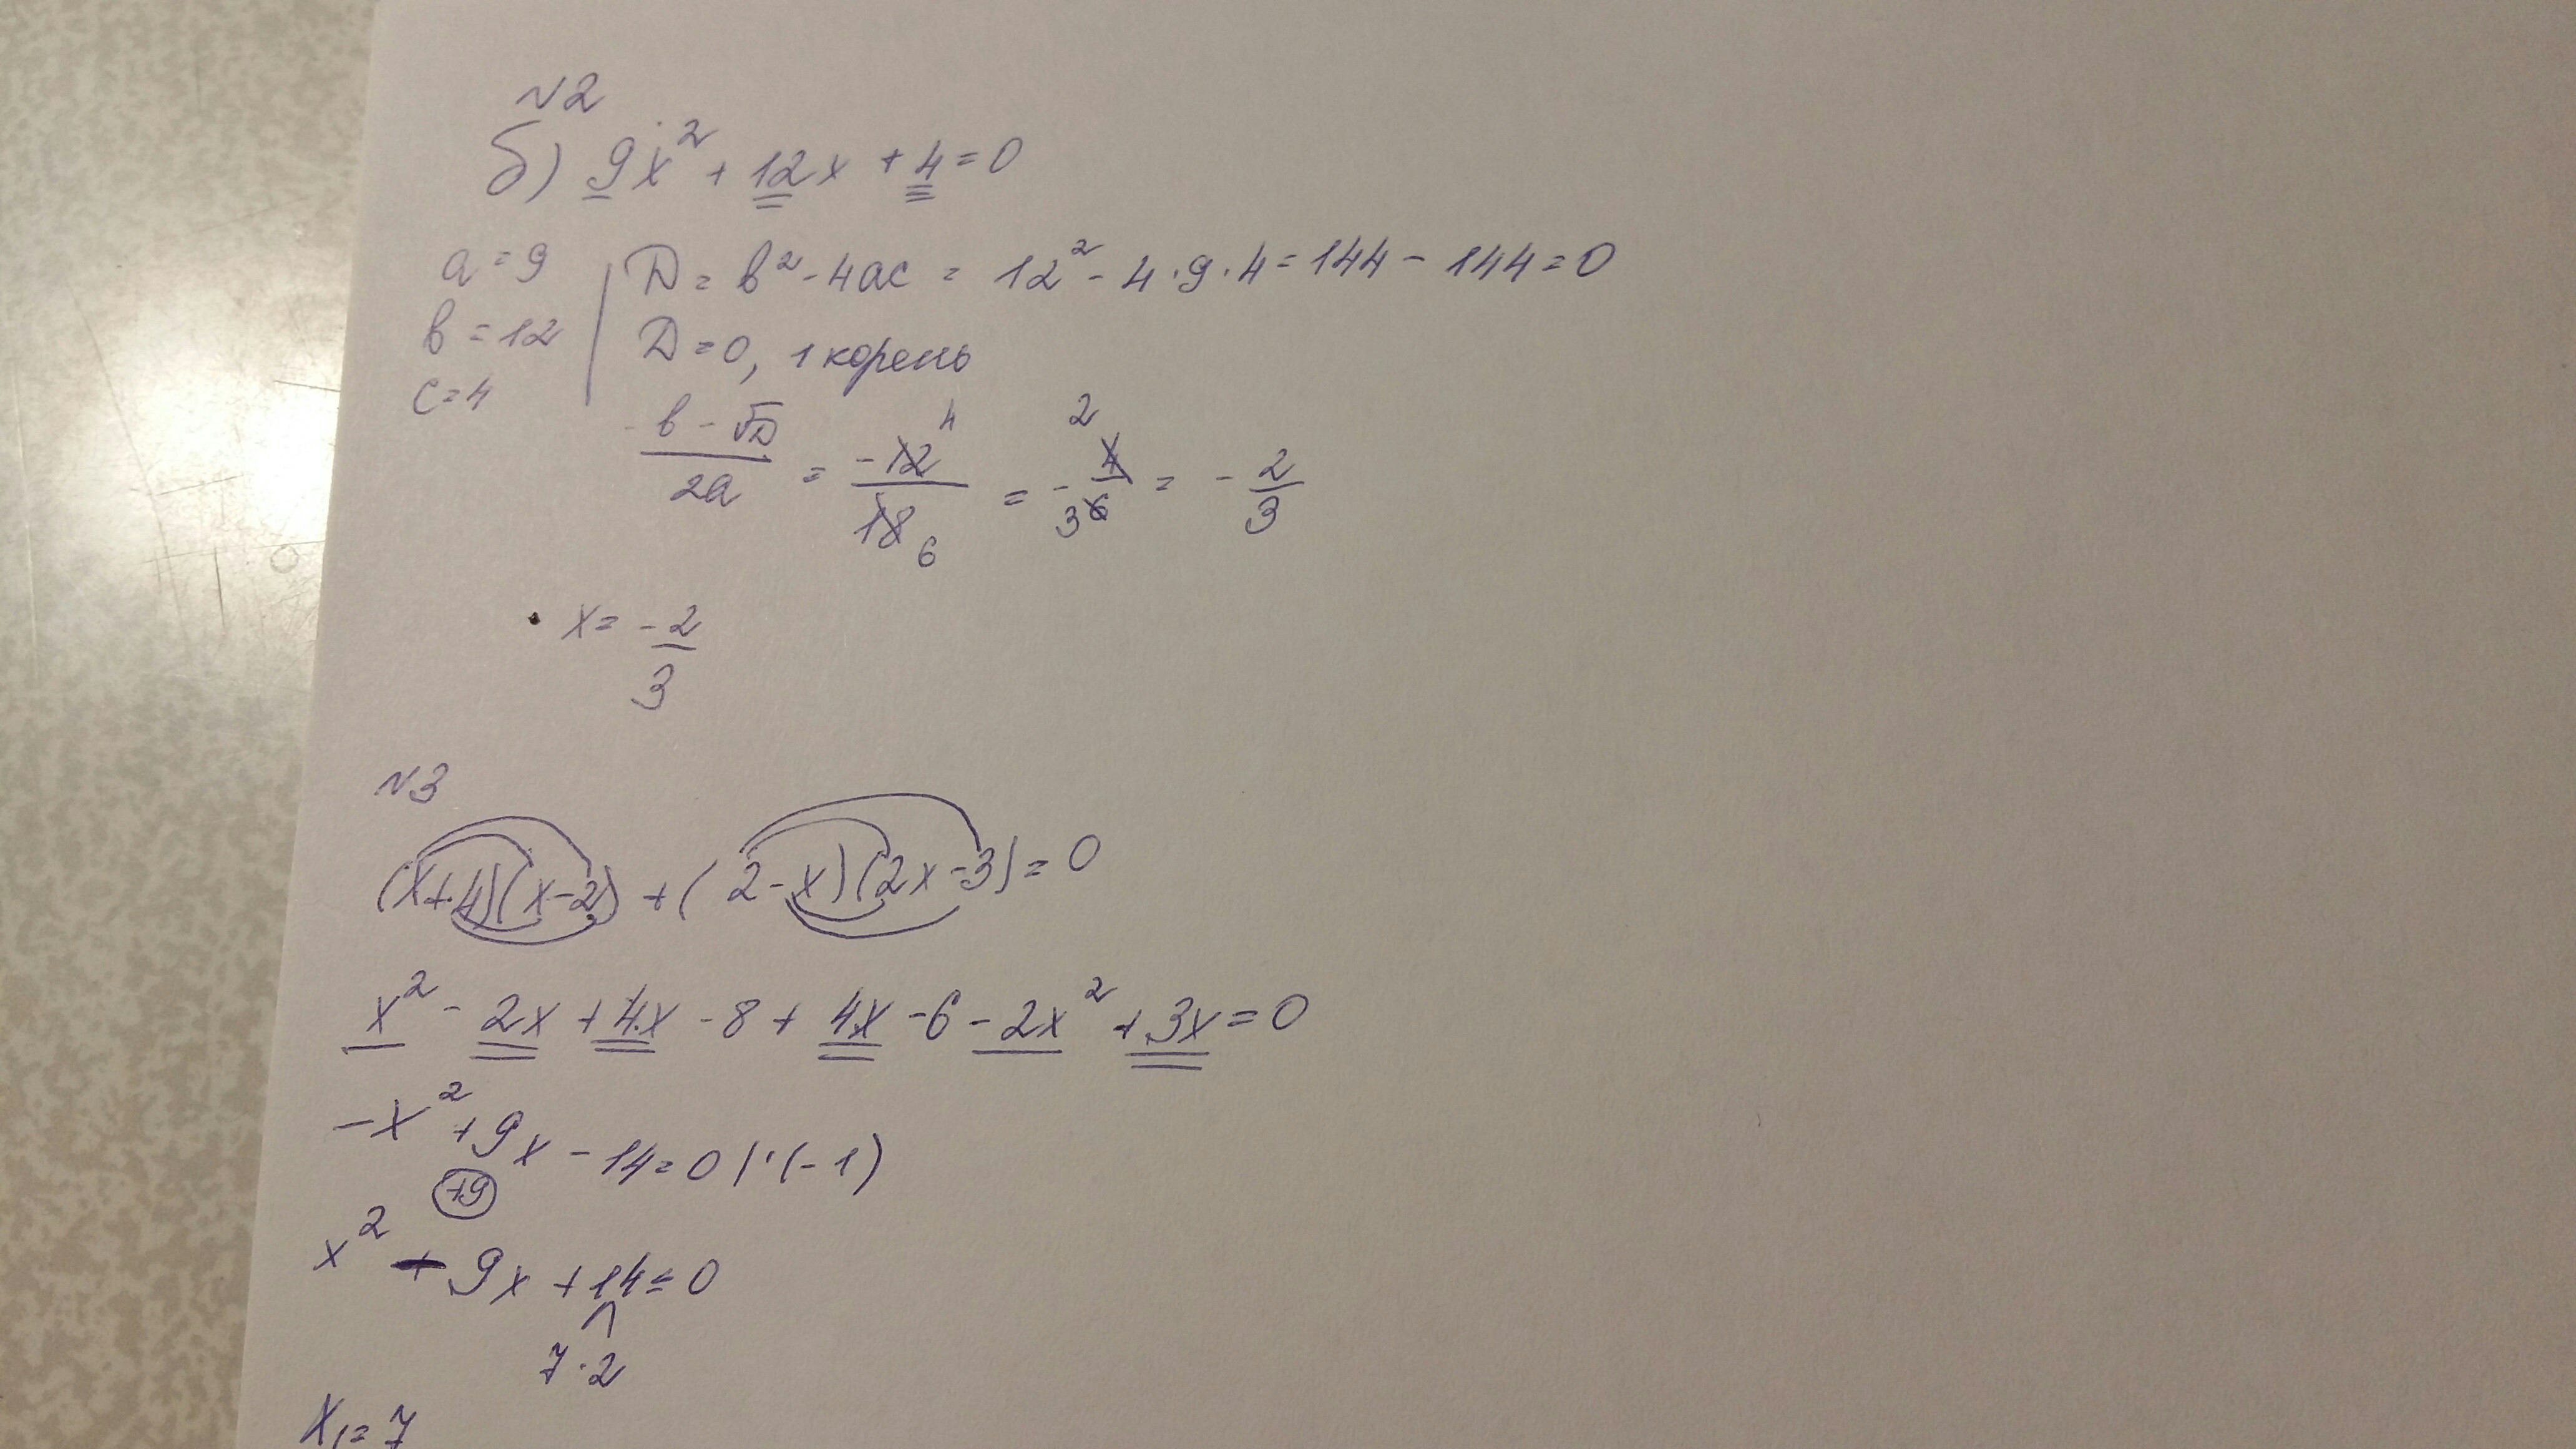 №2
б) 9x² + 12x + 4 = 0
a = 9
b = 12
c = 4
D = b² - 4ac = 12² - 4 · 9 · 4 = 144 - 144 = 0
D = 0, 1 корень
-b - √D / 2a = -12 4 / 18 6 = - 2 4 / 3 6 = - 2/3
x = -2/3
№3
(x+4)(x-2) + (2-x)(2x-3) = 0
x² - 2x + 4x - 8 + 4x - 6 - 2x² + 3x = 0
-x² + 9x - 14 = 0 | · (-1)
+9
x² - 9x + 14 = 0
7 · 2
x₁ = 7